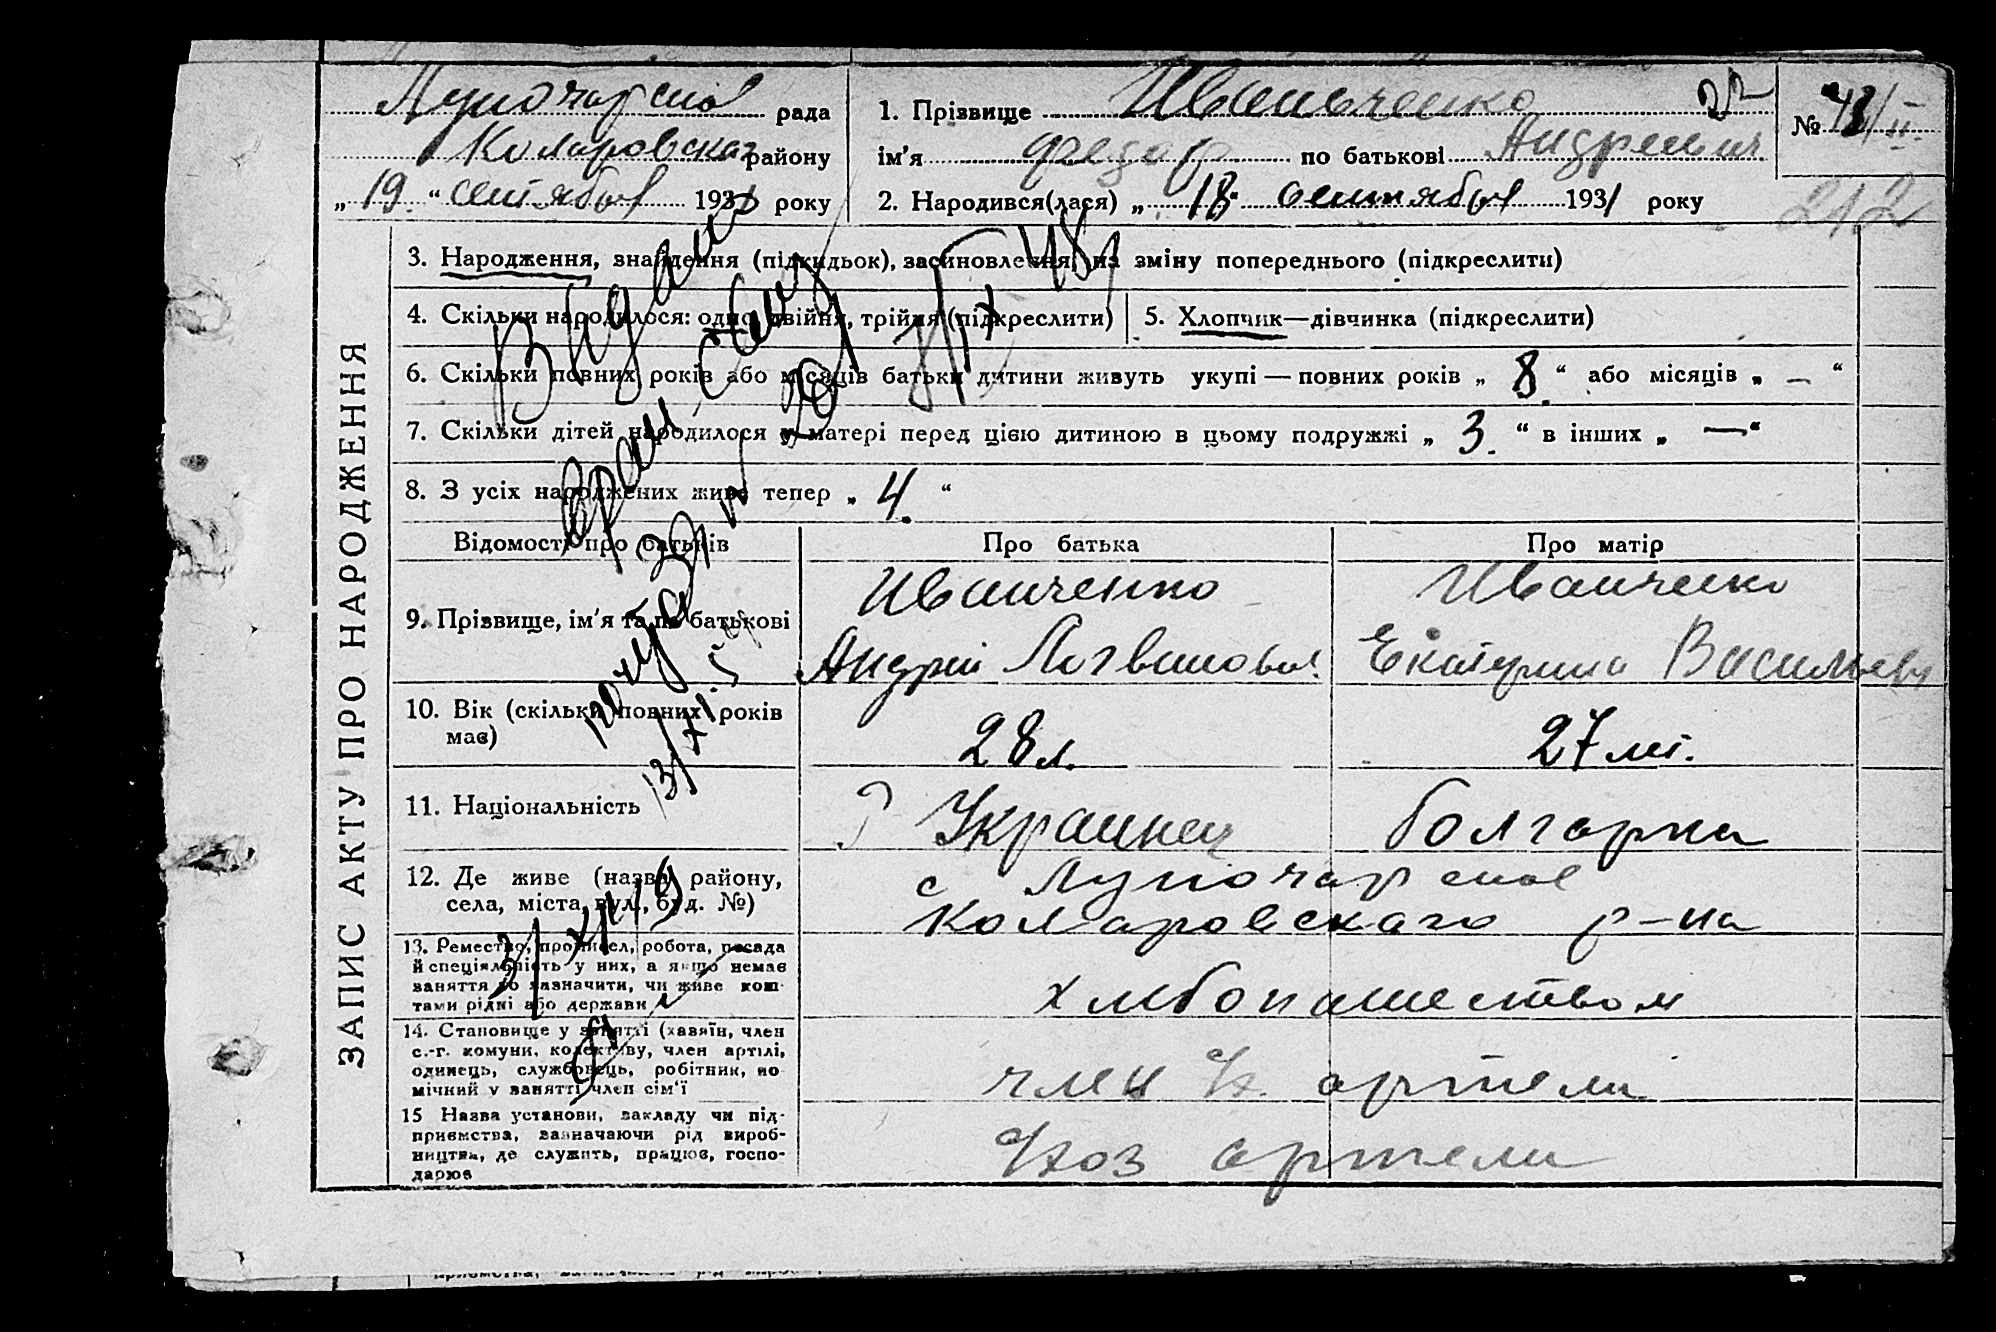 Луночарское рада
Коларовскаго району
„ 19. “ сентября 1931 року
1. Прізвище Иванченко
ім'я Федор по батькові Андреевич
2. Народився(лася) „ 18 “ сентября 1931 року
№ 48/II
212
ЗАПИС АКТУ ПРО НАРОДЖЕННЯ
3. Народження, знайдення (підкидьок), засиновлення, на зміну попереднього (підкреслити)
4. Скільки народилося: одно, двійня, трійня (підкреслити)
5. Хлопчик—дівчинка (підкреслити)
6. Скільки повних років або місяців батьки дитини живуть укупі — повних років „ 8. “ або місяців „ — “
7. Скільки дітей народилося у матері перед цією дитиною в цьому подружжі „ 3. “ в інших „ — “
8. З усіх народжених живе тепер „ 4. “
Відомості про батьків
Про батька
Про матір
9. Прізвище, ім'я та по батькові
Иванченко
Андрей Логвинович
Иванченко
Екатерина Васильевн
10. Вік (скільки повних років має)
28 л.
27 лет.
11. Національність
Украинец
болгарка
12. Де живе (назва району,
села, міста, вул., буд. №)
с Луночарское
Коларовскаго р-на
13. Ремество, промисел, робота, посада
й спеціяльність у них, а якщо немає
заняття то зазначити, чи живе кош-
тами рідні або держави
хлебопашеством
14. Становище у занятті (хазяїн, член
с.-г. комуни, колективу, член артілі,
одинець, службовець, робітник, по-
мічний у занятті член сім'ї
член артели
15 Назва установи, закладу чи під-
приємства, зазначаючи рід вироб-
ництва, де служить, працює, госпо-
дарює
артели
Выдано
13/XI-5